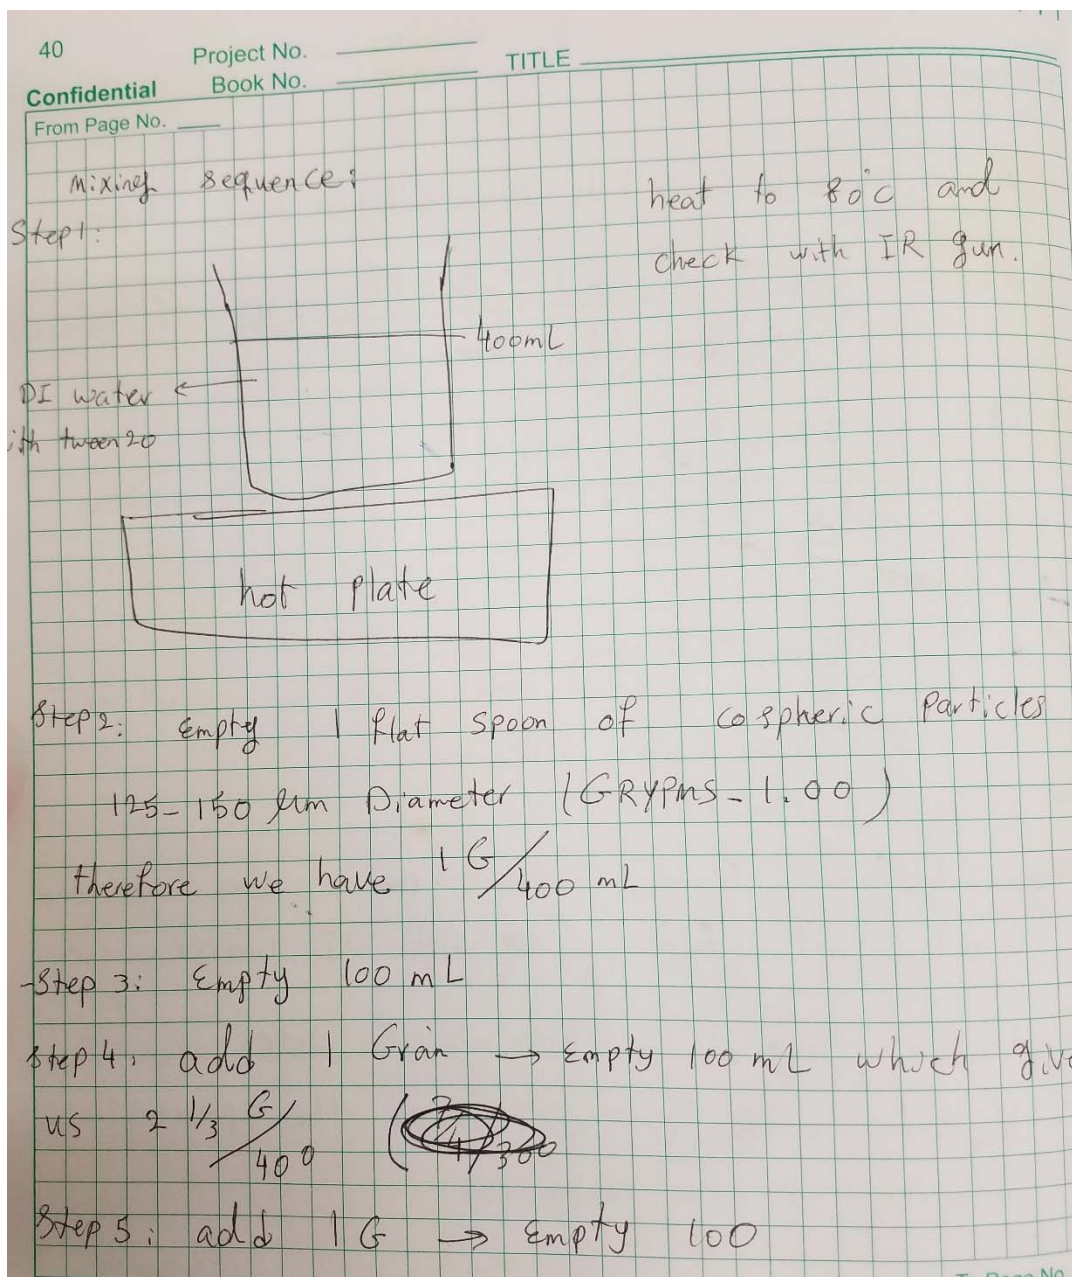 40
Project No.
TITLE
Confidential
Book No.
From Page No.
Mixing sequence:
heat to 80°c and
check with IR gun.
Step1:
400mL
DI water
ith tween 20
hot plate
Step2: Empty 1 flat spoon of cospheric Particles
125-150 µm Diameter (GRYPMS-1.00)
therefore we have 1G/400 mL
Step 3: Empty 100 mL
Step 4: add 1 Gram → Empty 100 mL which give
us 2 1/3 G/400
Step 5: add 1G → Empty 100